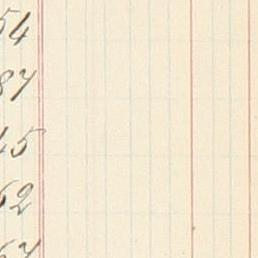 54
87
45
62
57